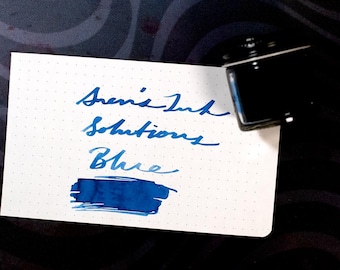 Sven's Ink
Solutions
Blue